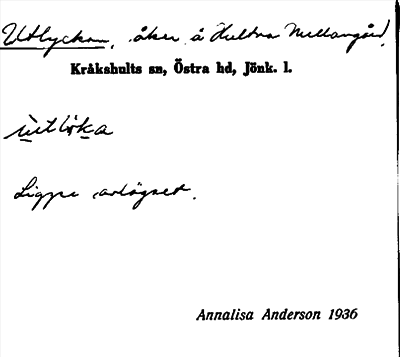 Utlyckan, åker å Hultna Mellangård,
Kråkshults sn, Östra hd, Jönk. l.
ùtlöka
Ligger avlägset.
Annalisa Anderson 1936